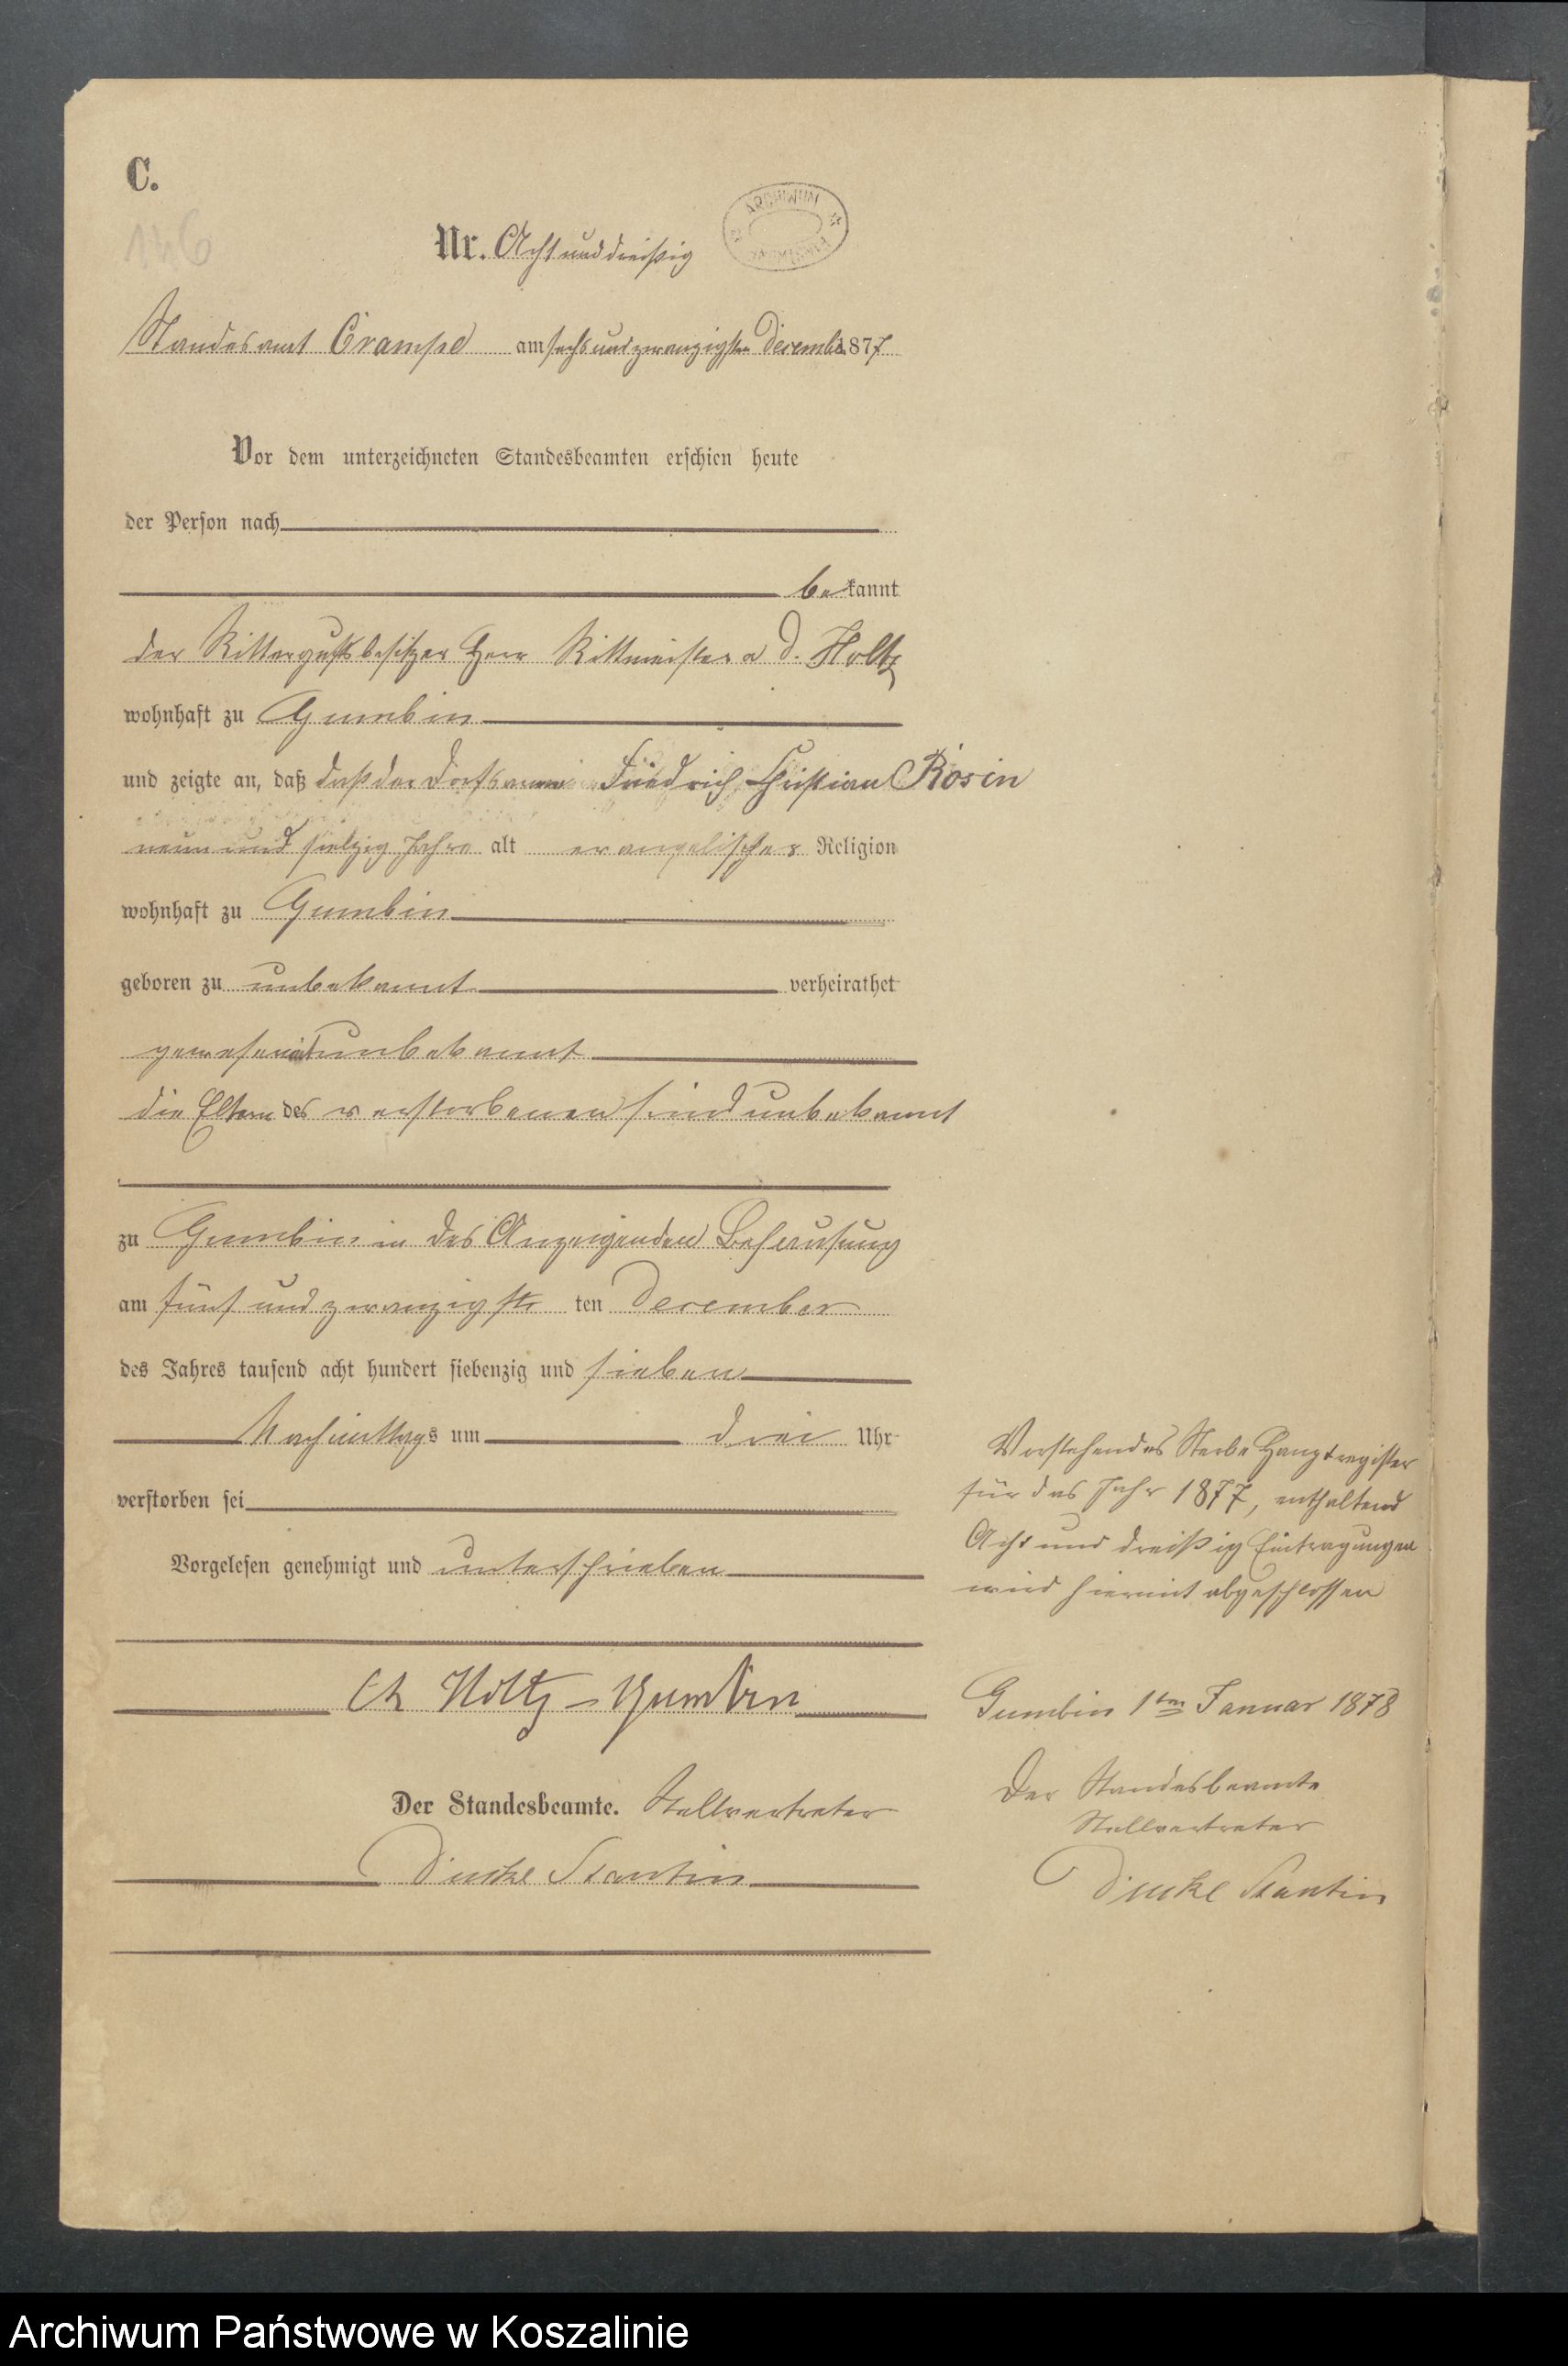 C.
146
Nr. Acht und dreißig
ARCHIWUM
Standesamt Crampe am sechs und zwanzigsten December 1877
Vor dem unterzeichneten Standesbeamten erschien heute
der Person nach
bekannt
der Rittergutsbesitzer Herr Rittmeister a D. Holtz
wohnhaft zu Gumbin
und zeigte an, daß daß der Dorfsarme Friedrich Christian Rosin
neun und siebzig Jahre alt evangelischer Religion
wohnhaft zu Gumbin
geboren zu unbekannt verheirathet
gewesen mit unbekannt
die Eltern des verstorbenen sind unbekannt
zu Gumbin in des Anzeigenden Behausung
am fünf und zwanzigste ten December
des Jahres tausend acht hundert siebenzig und sieben
Nachmittags um drei Uhr
verstorben sei
Vorgelesen genehmigt und unterschrieben
Holtz - Gumbin
Der Standesbeamte. Stellvertreter
Stantin
Vorstehendes Sterbe Hauptregister
für das Jahr 1877, enthaltend
Acht und dreißig Eintragungen
wird hiermit abgeschlossen
Gumbin 1ten Januar 1878
Der Standesbeamte
Stellvertreter
Stantin
Archiwum Państwowe w Koszalinie